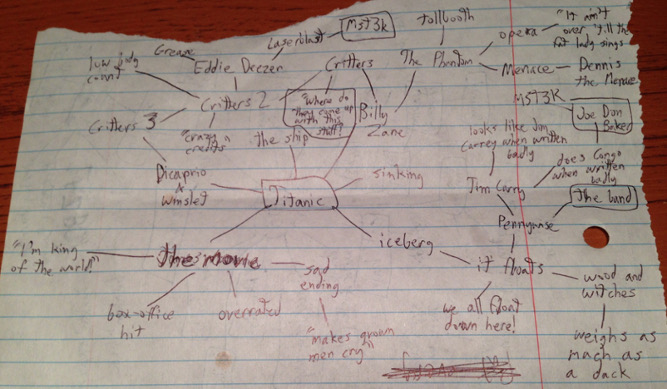 tollbooth
"It ain't
over 'till the
fat lady sings
opera
Mst3k
Laserblast
Grease
low body
count
Eddie Deezen
Critters
The Phantom
Menace
Dennis
the Menace
MST3K
Joe Don
Baker
Critters 2
"Where do
they come up
with this
stuff?"
Billy
Zane
Critters 3
"crazy
credits
the ship
looks like Jim
Carrey when written
badly
does
when written
badly
Dicaprio
&
Winslet
Titanic
sinking
Jim Carry
The band
Pennywise
"I'm king
of the world"
the movie
iceberg
it floats
sad
ending
box-office
hit
overrated
we all float
down here!
wood and
witches
"makes grown
men cry"
weighs as
much as
a duck